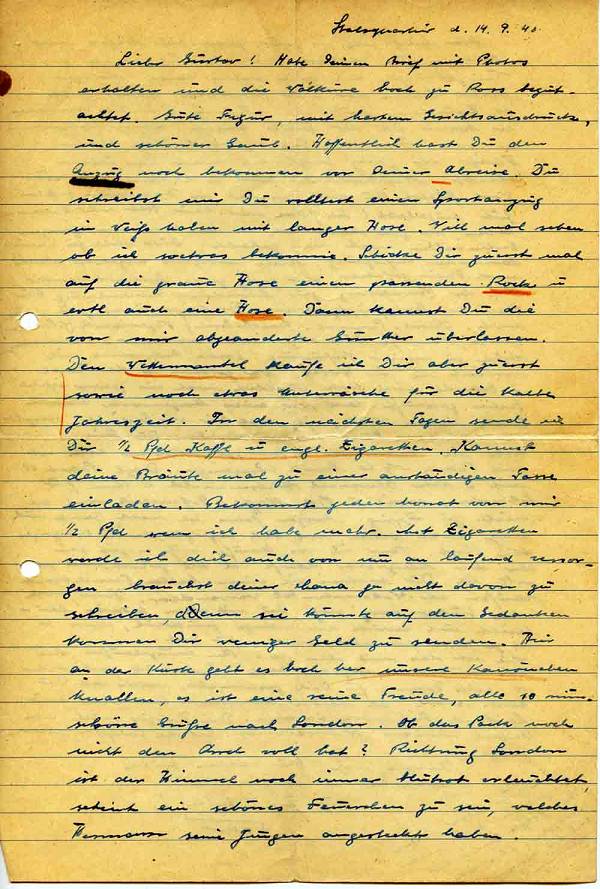 Stabsquartier d. 14.9.40
Lieber Gustav! Habe Deinen Brief mit Photos
erhalten und die Walküre hoch zu Ross begut-
achtet. Gute Figur, mit hartem Gesichtsausdrucke,
und schöner Gaul. Hoffentlich hast Du den
Anzug noch bekommen vor Deiner Abreise. Du
schreibst mir Du wolltest einen Sportanzug
in Weiß haben mit langer Hose. Will mal sehen
ob ich soetwas bekomme. Schicke Dir zuerst mal
auf die graue Hose einen passenden Rock u
evtl auch eine Hose. Dann kannst Du die
von mir abgeänderte Günther überlassen.
Den Wettermantel kaufe ich Dir aber zuerst
sowie noch etwas Unterwäsche für die kalte
Jahreszeit. In den nächsten Tagen sende ich
Dir 1/2 Pfd Kaffe u engl. Zigaretten. Kannst
deine Bräute mal zu einer anständigen Tasse
einladen. Bekommst jeden Monat von mir
1/2 Pfd wenn ich habe mehr. Mit Zigaretten
werde ich dich auch von nun an laufend versor-
gen brauchst deiner Mama ja nicht davon zu
schreiben, denn sie könnte auf den Gedanken
kommen Dir weniger Geld zu senden. Hier
an der Küste geht es hoch her unsere Kanönchen
knallen, es ist eine reine Freude, alle 10 min.
schöne Grüße nach London. Ob das Pack noch
nicht den Arsch voll hat? Richtung London
ist der Himmel noch immer blutrot erleuchtet,
scheint ein schönes Feuerchen zu sein, welches
Hermann seine Jungen angesteckt haben.